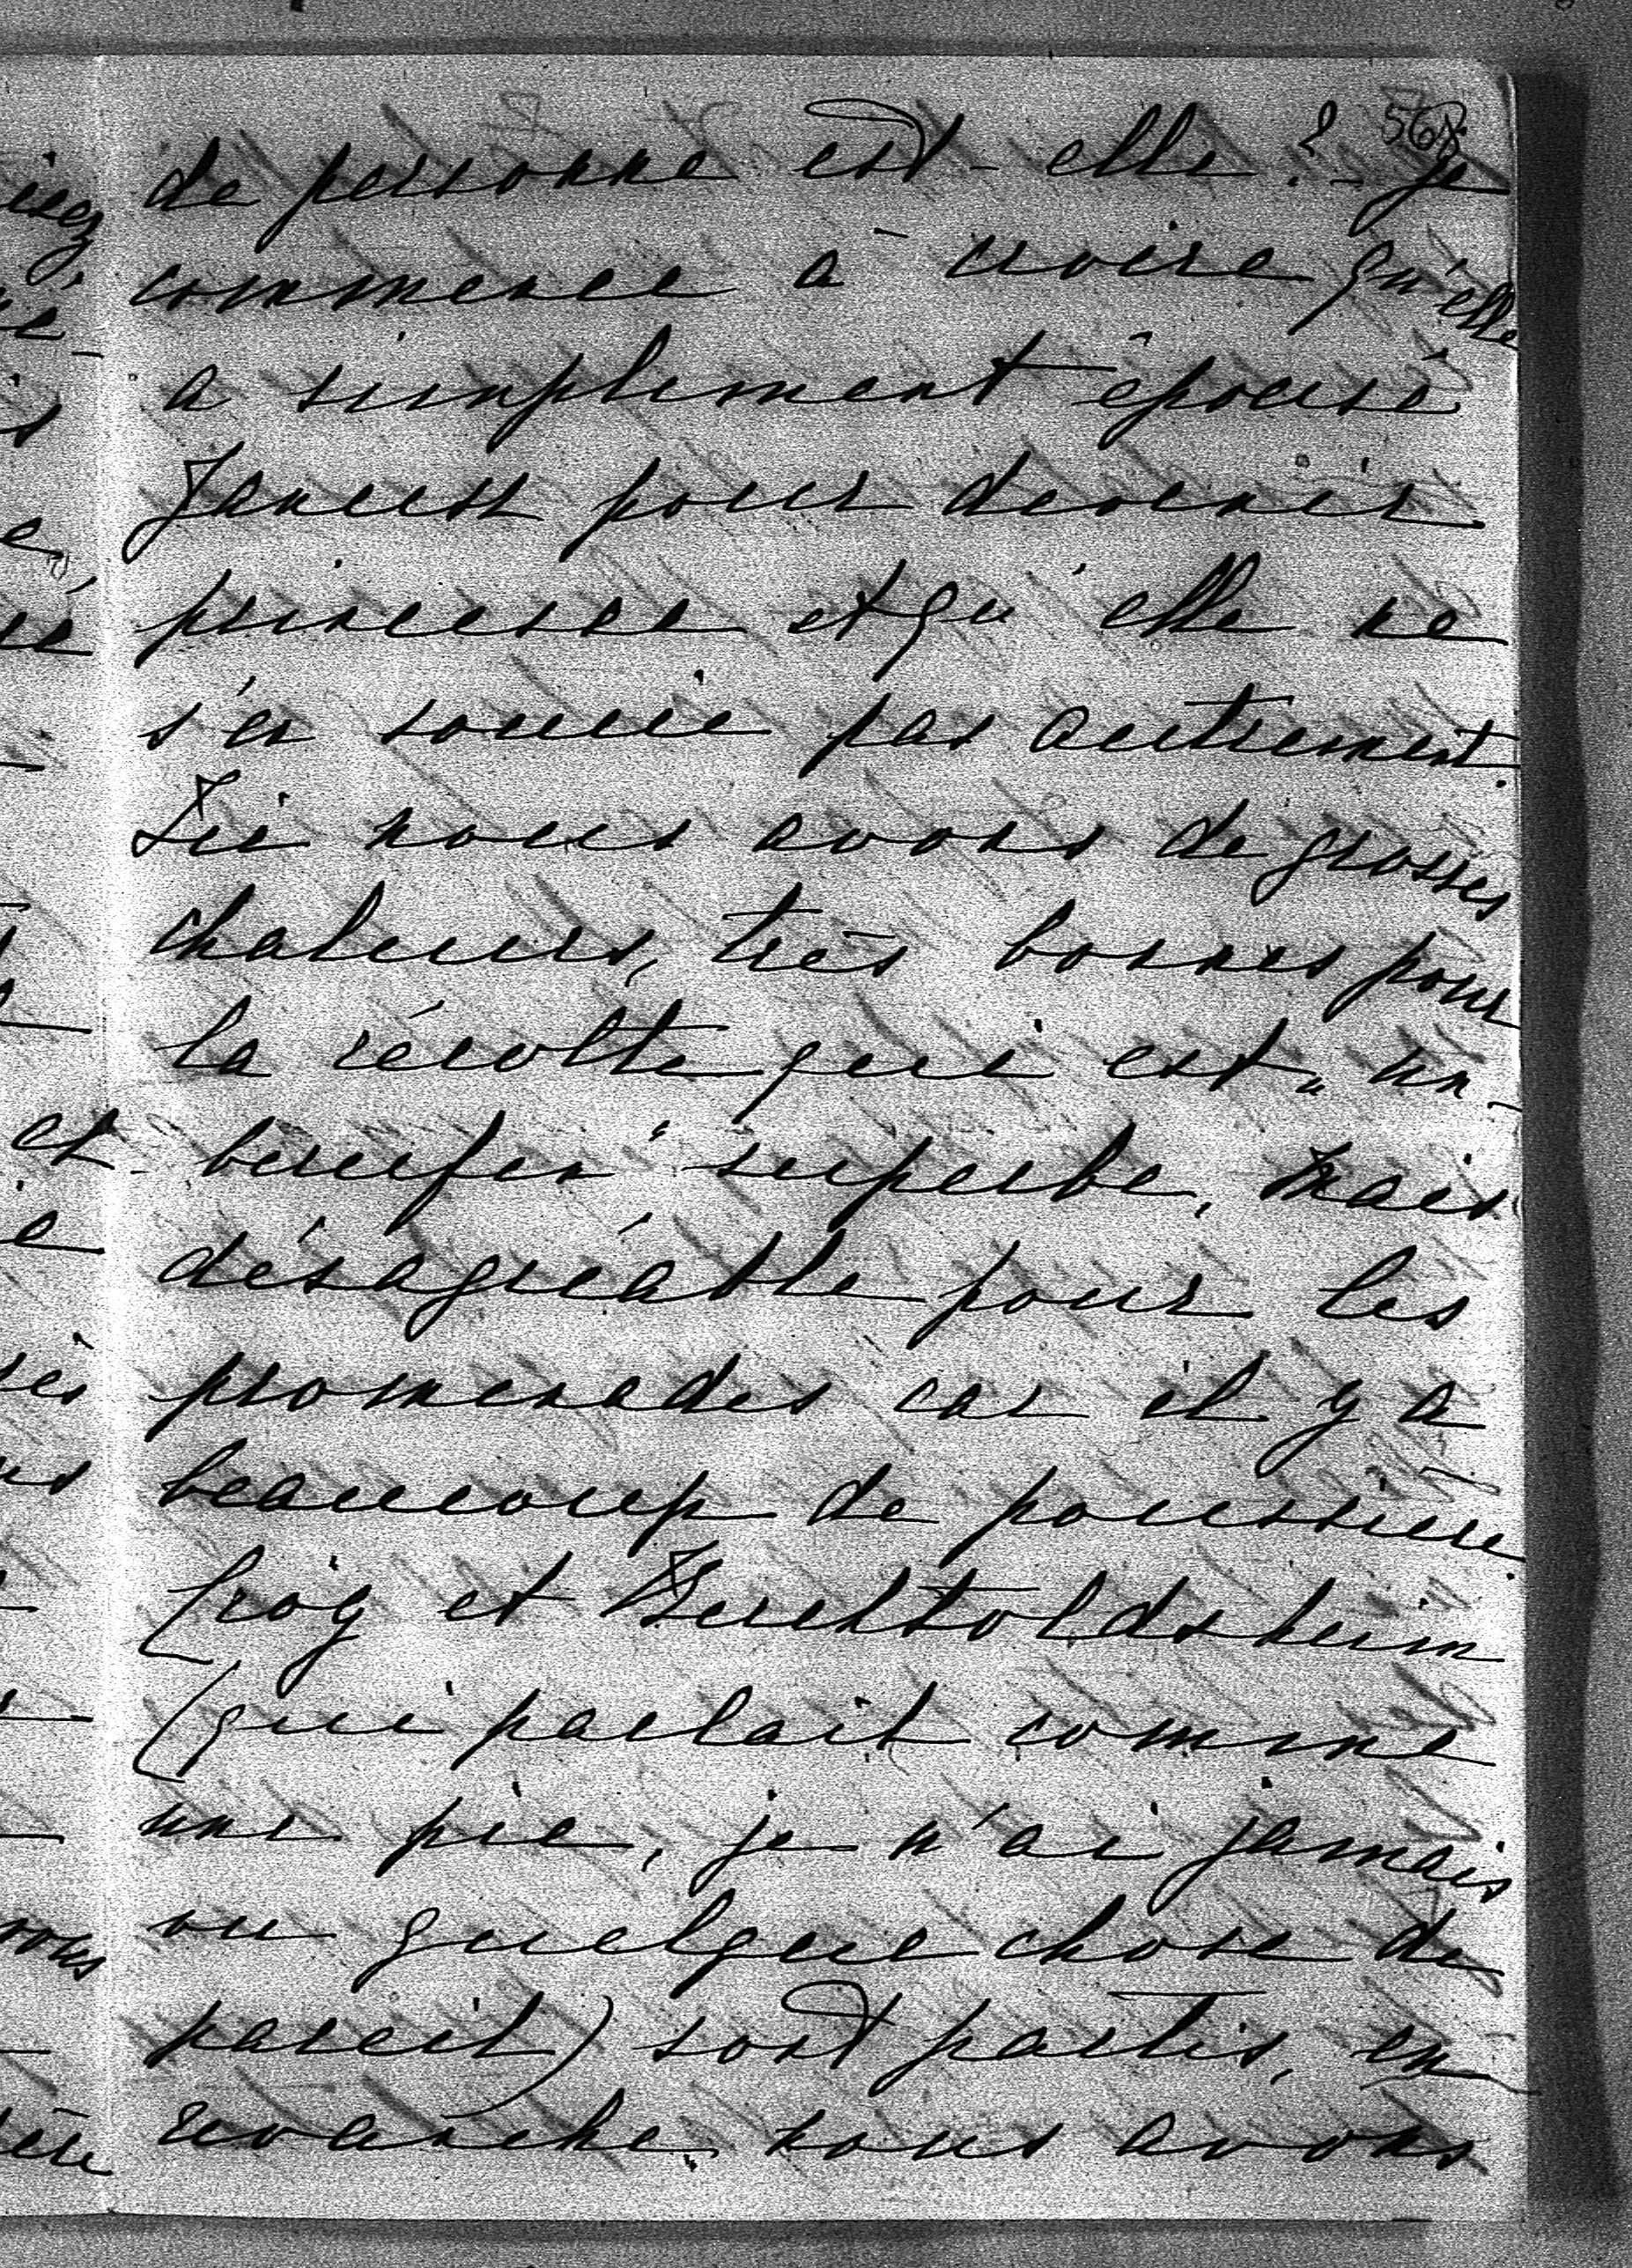 568
de personne est-elle? - je
commence à croire qu'elle
a simplement épousé
Janusz pour devenir
princesse et qu'elle ne
s'en soucie pas autrement.
Ici nous avons de grosses
chaleurs, très bonnes pour
la récolte qui est „un-
berufen" superbe, mais
désagréable pour les
promenades car il y a
beaucoup de poussière.
Croÿ et Berchtoldsheim
(qui parlait comme
une pie, je n'ai jamais
vu quelque chose de
pareil) sont partis, en
revanche nous avons